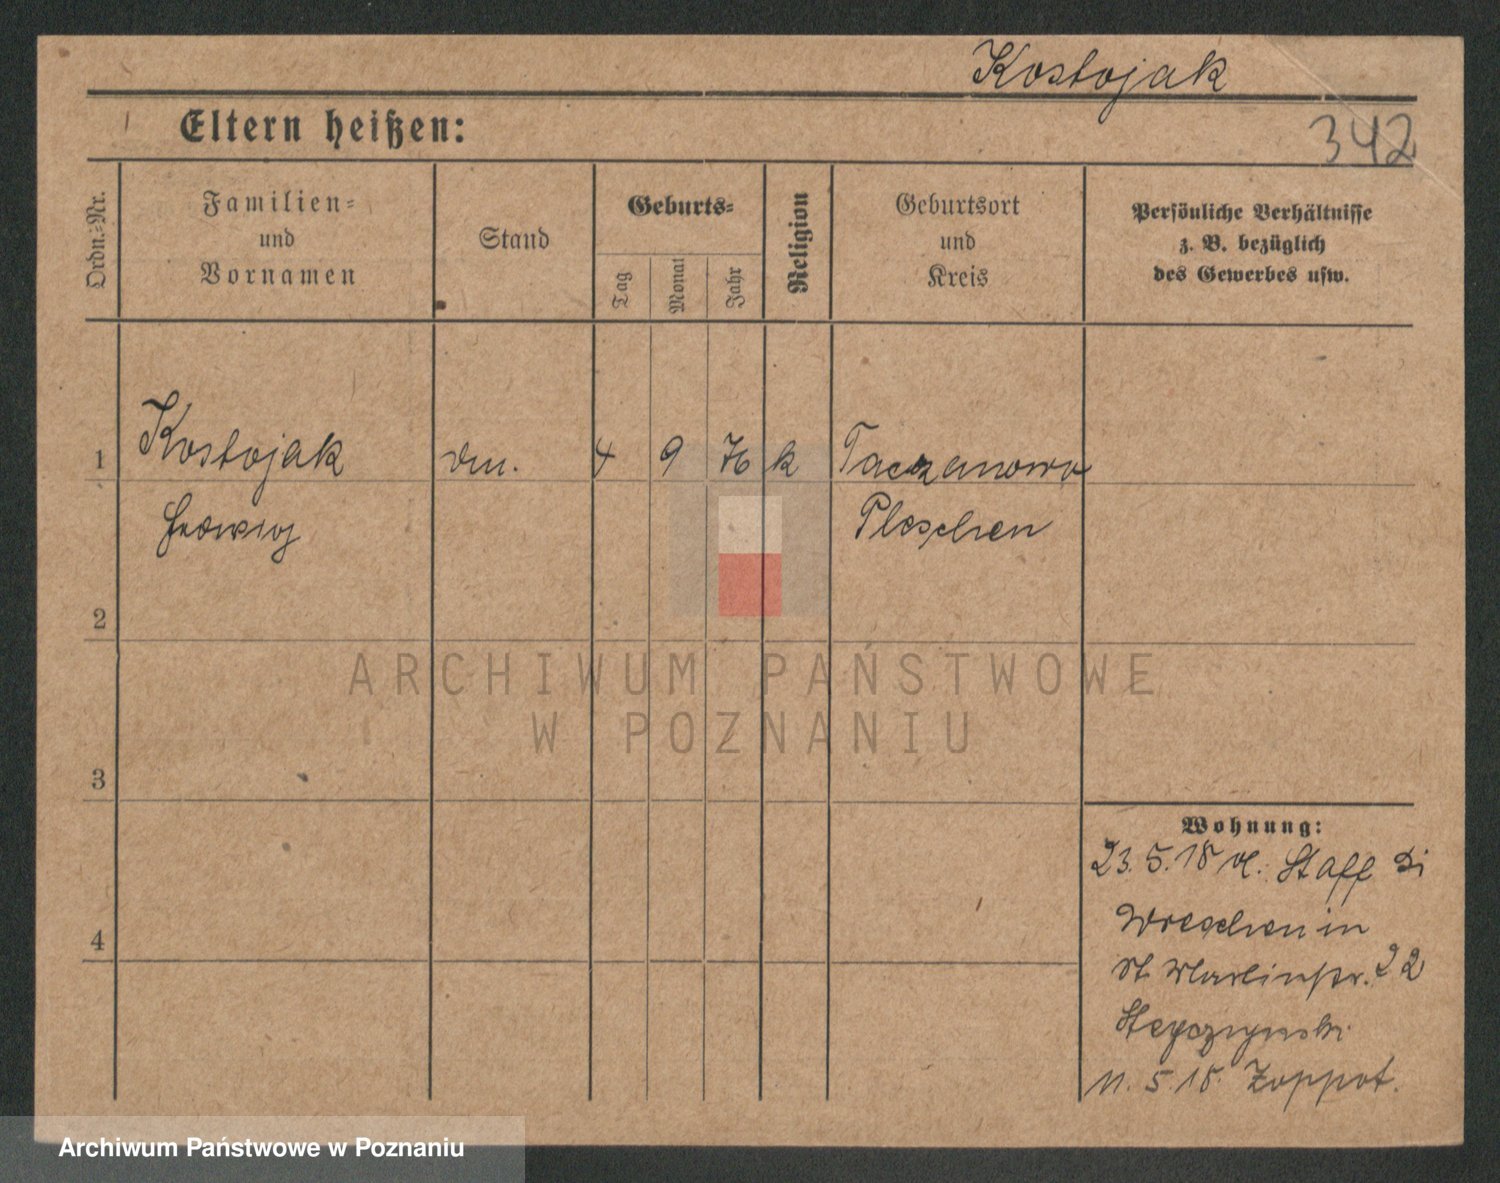 Kostojak
Eltern heißen:
342
Ordn.-Nr.
Familien-
und
Vornamen
Stand
Geburts-
Tag
Monat
Jahr
Religion
Geburtsort
und
Kreis
Persönliche Verhältnisse
z. B. bezüglich
des Gewerbes usw.
1 Kostojak 4 9 76 k Taczanowo
Hedwig Pleschen
2
3
4
ARCHIWUM PAŃSTWOWE
W POZNANIU
Wohnung:
23. 5. 18
Wreschen in
St. Martinstr. 22
11. 5. 18. Zoppot.
Archiwum Państwowe w Poznaniu